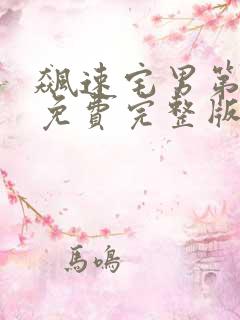 飆速宅男第
免費完整版
馬鳴